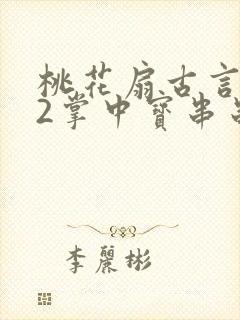 桃花扇古言
2掌中寶串
李麗彬